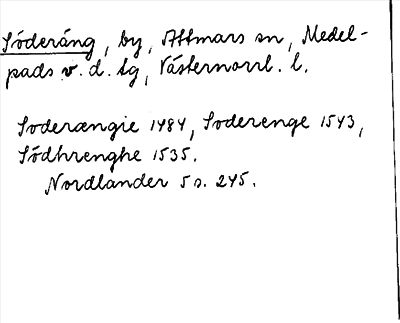 Söderäng, by, Attmars sn, Medel-
pads v. d. tg, Västernorrl. l.
Soderængie 1484, Soderenge 1543,
Södhrenghe 1535.
Nordlander 5 s. 245.